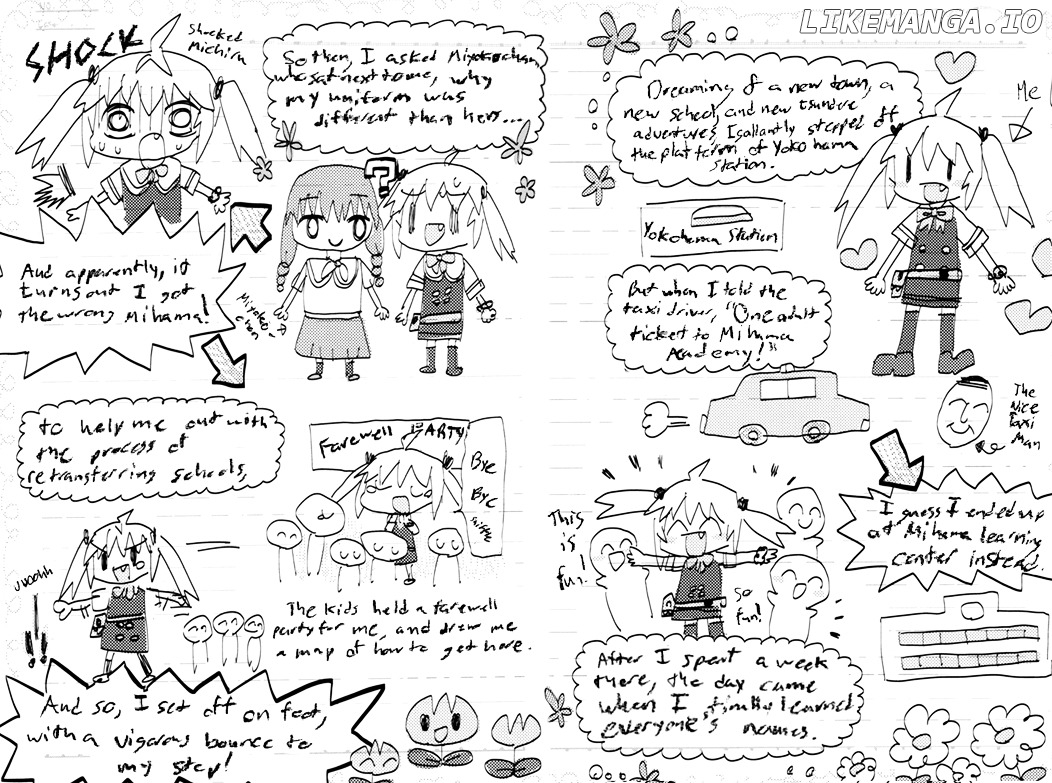 LIKEMANGA.IO
Me
Dreaming of a new town, a
new school, and new tsundere
adventures, I gallantly stepped off
the platform of Yokohama
Station.
Yokohama Station
But when I told the
taxi driver, "One adult
ticket to Mihama
Academy!"
The
Nice
Taxi
Man
I guess I ended up
at Mihama learning
center instead.
This
is
fun!
so
fun!
After I spent a week
there, the day came
when I finally learned
everyone's names.
So then, I asked Miyokochan,
who sat next to me, why
my uniform was
different than hers...
?
Miyoko-
chan
SHOCK
Shocked
Michiru
And apparently, it
turns out I got
the wrong Mihama!
to help me out with
the process of
retransferring schools,
Farewell PARTY
Bye
Bye
The kids held a farewell
party for me, and drew me
a map of how to get here.
!!!
And so, I set off on foot,
with a vigorous bounce to
my step!